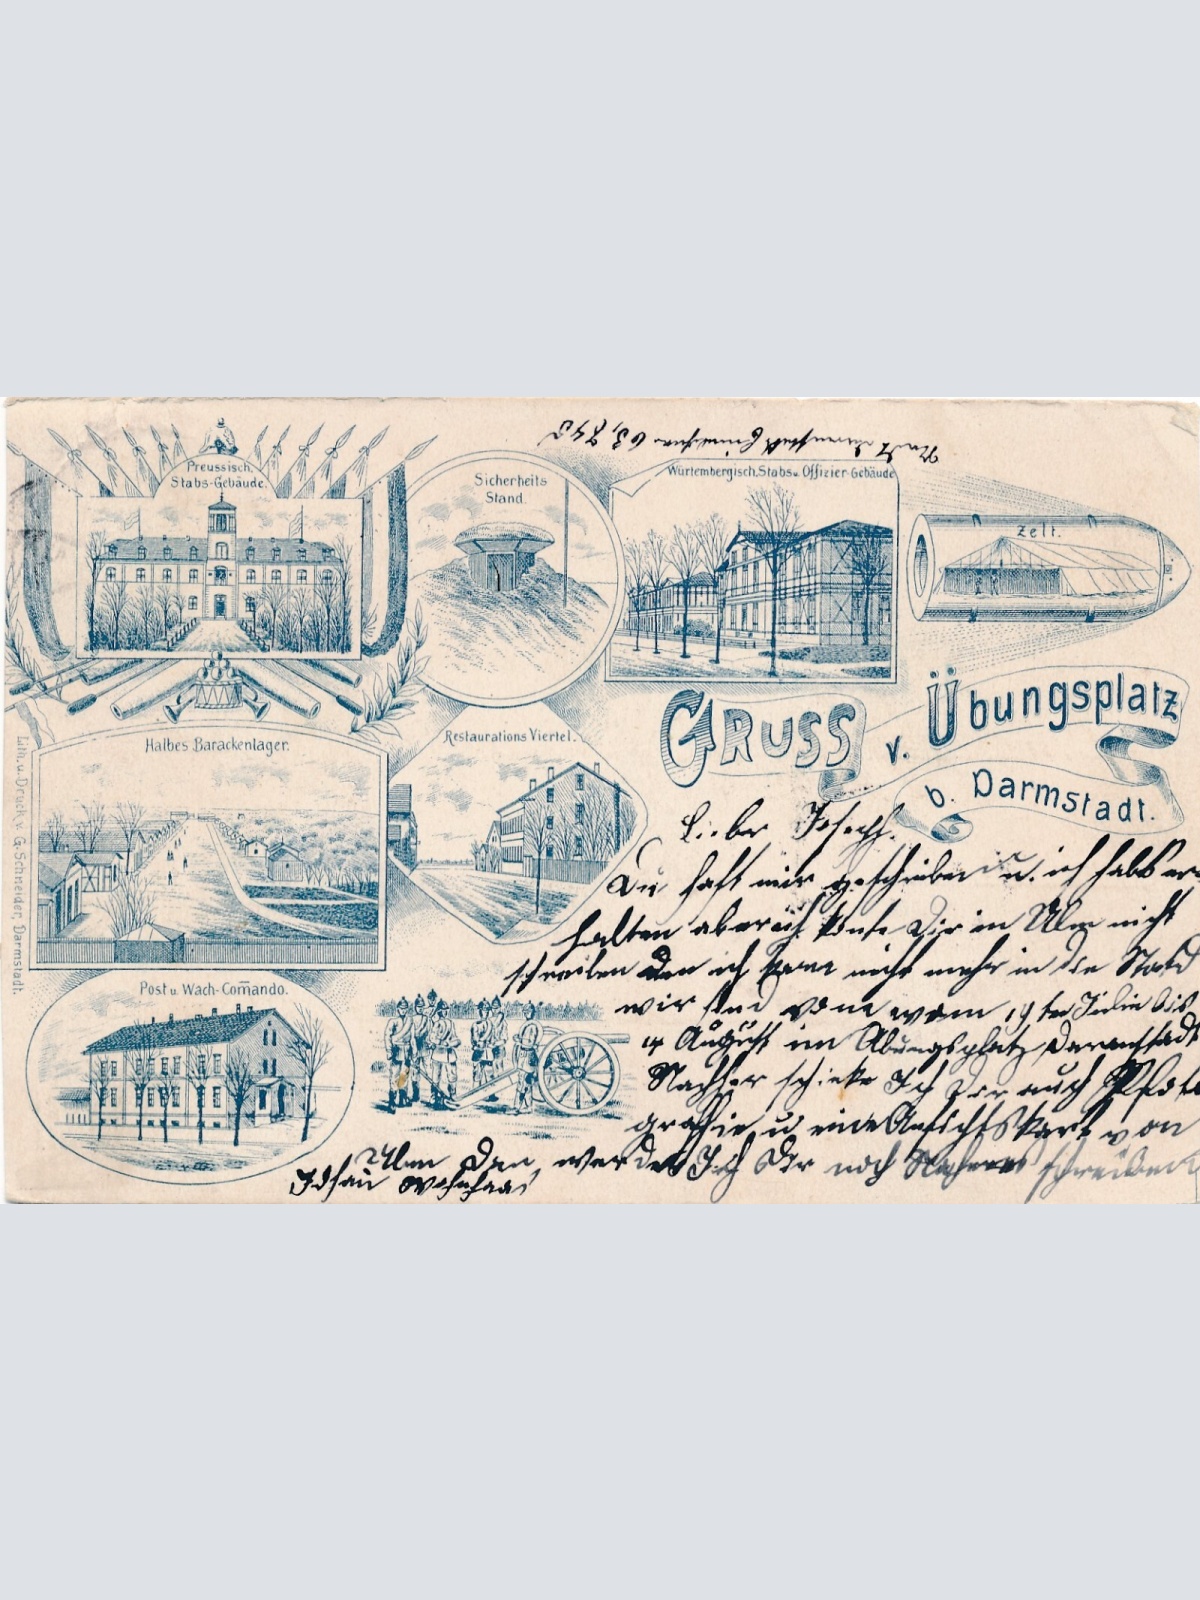 Preussisch.
Stabs-Gebäude.
Sicherheits
Stand.
Würtembergisch, Stabs u. Offizier-Gebäude
Zelt.
Gruss v. Übungsplatz
b. Darmstadt.
Halbes Barackenlager.
Restaurations Viertel.
Post u. Wach-Com̄ando.
Lith. u. Druck v. G. Schneider, Darmstadt.
Lieber Joseph.
Du hast mir geschrieben u. ich habs er-
halten aber ich konte Dir in Ulm nicht
schreiben den ich kam nicht mehr in die Stadt
wir sind vom 19ten Julie bis
14 August im Übungsplatz Darmstadt
Nachher schicke Ich Dir auch Phfoto
grafie u eine Ansichtskart von
Ulm Den werde Ich Dir noch schreiben